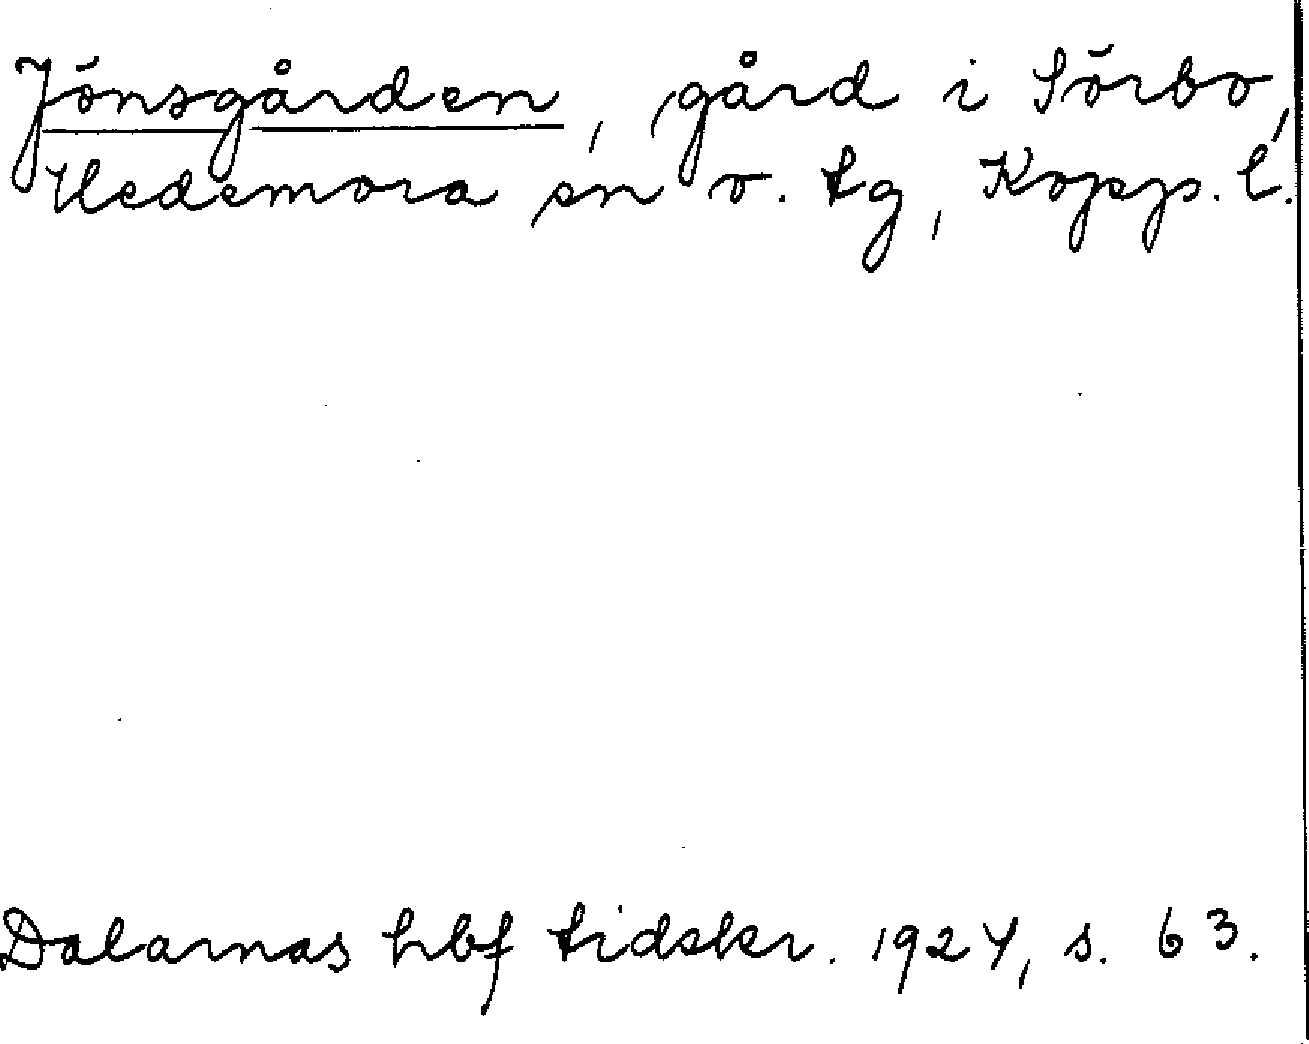 Jönsgården, gård i Sörbo,
Hedemora sn o. tg, Kopp. l.
Dalarnas hbf tidskr. 1924, s. 63.